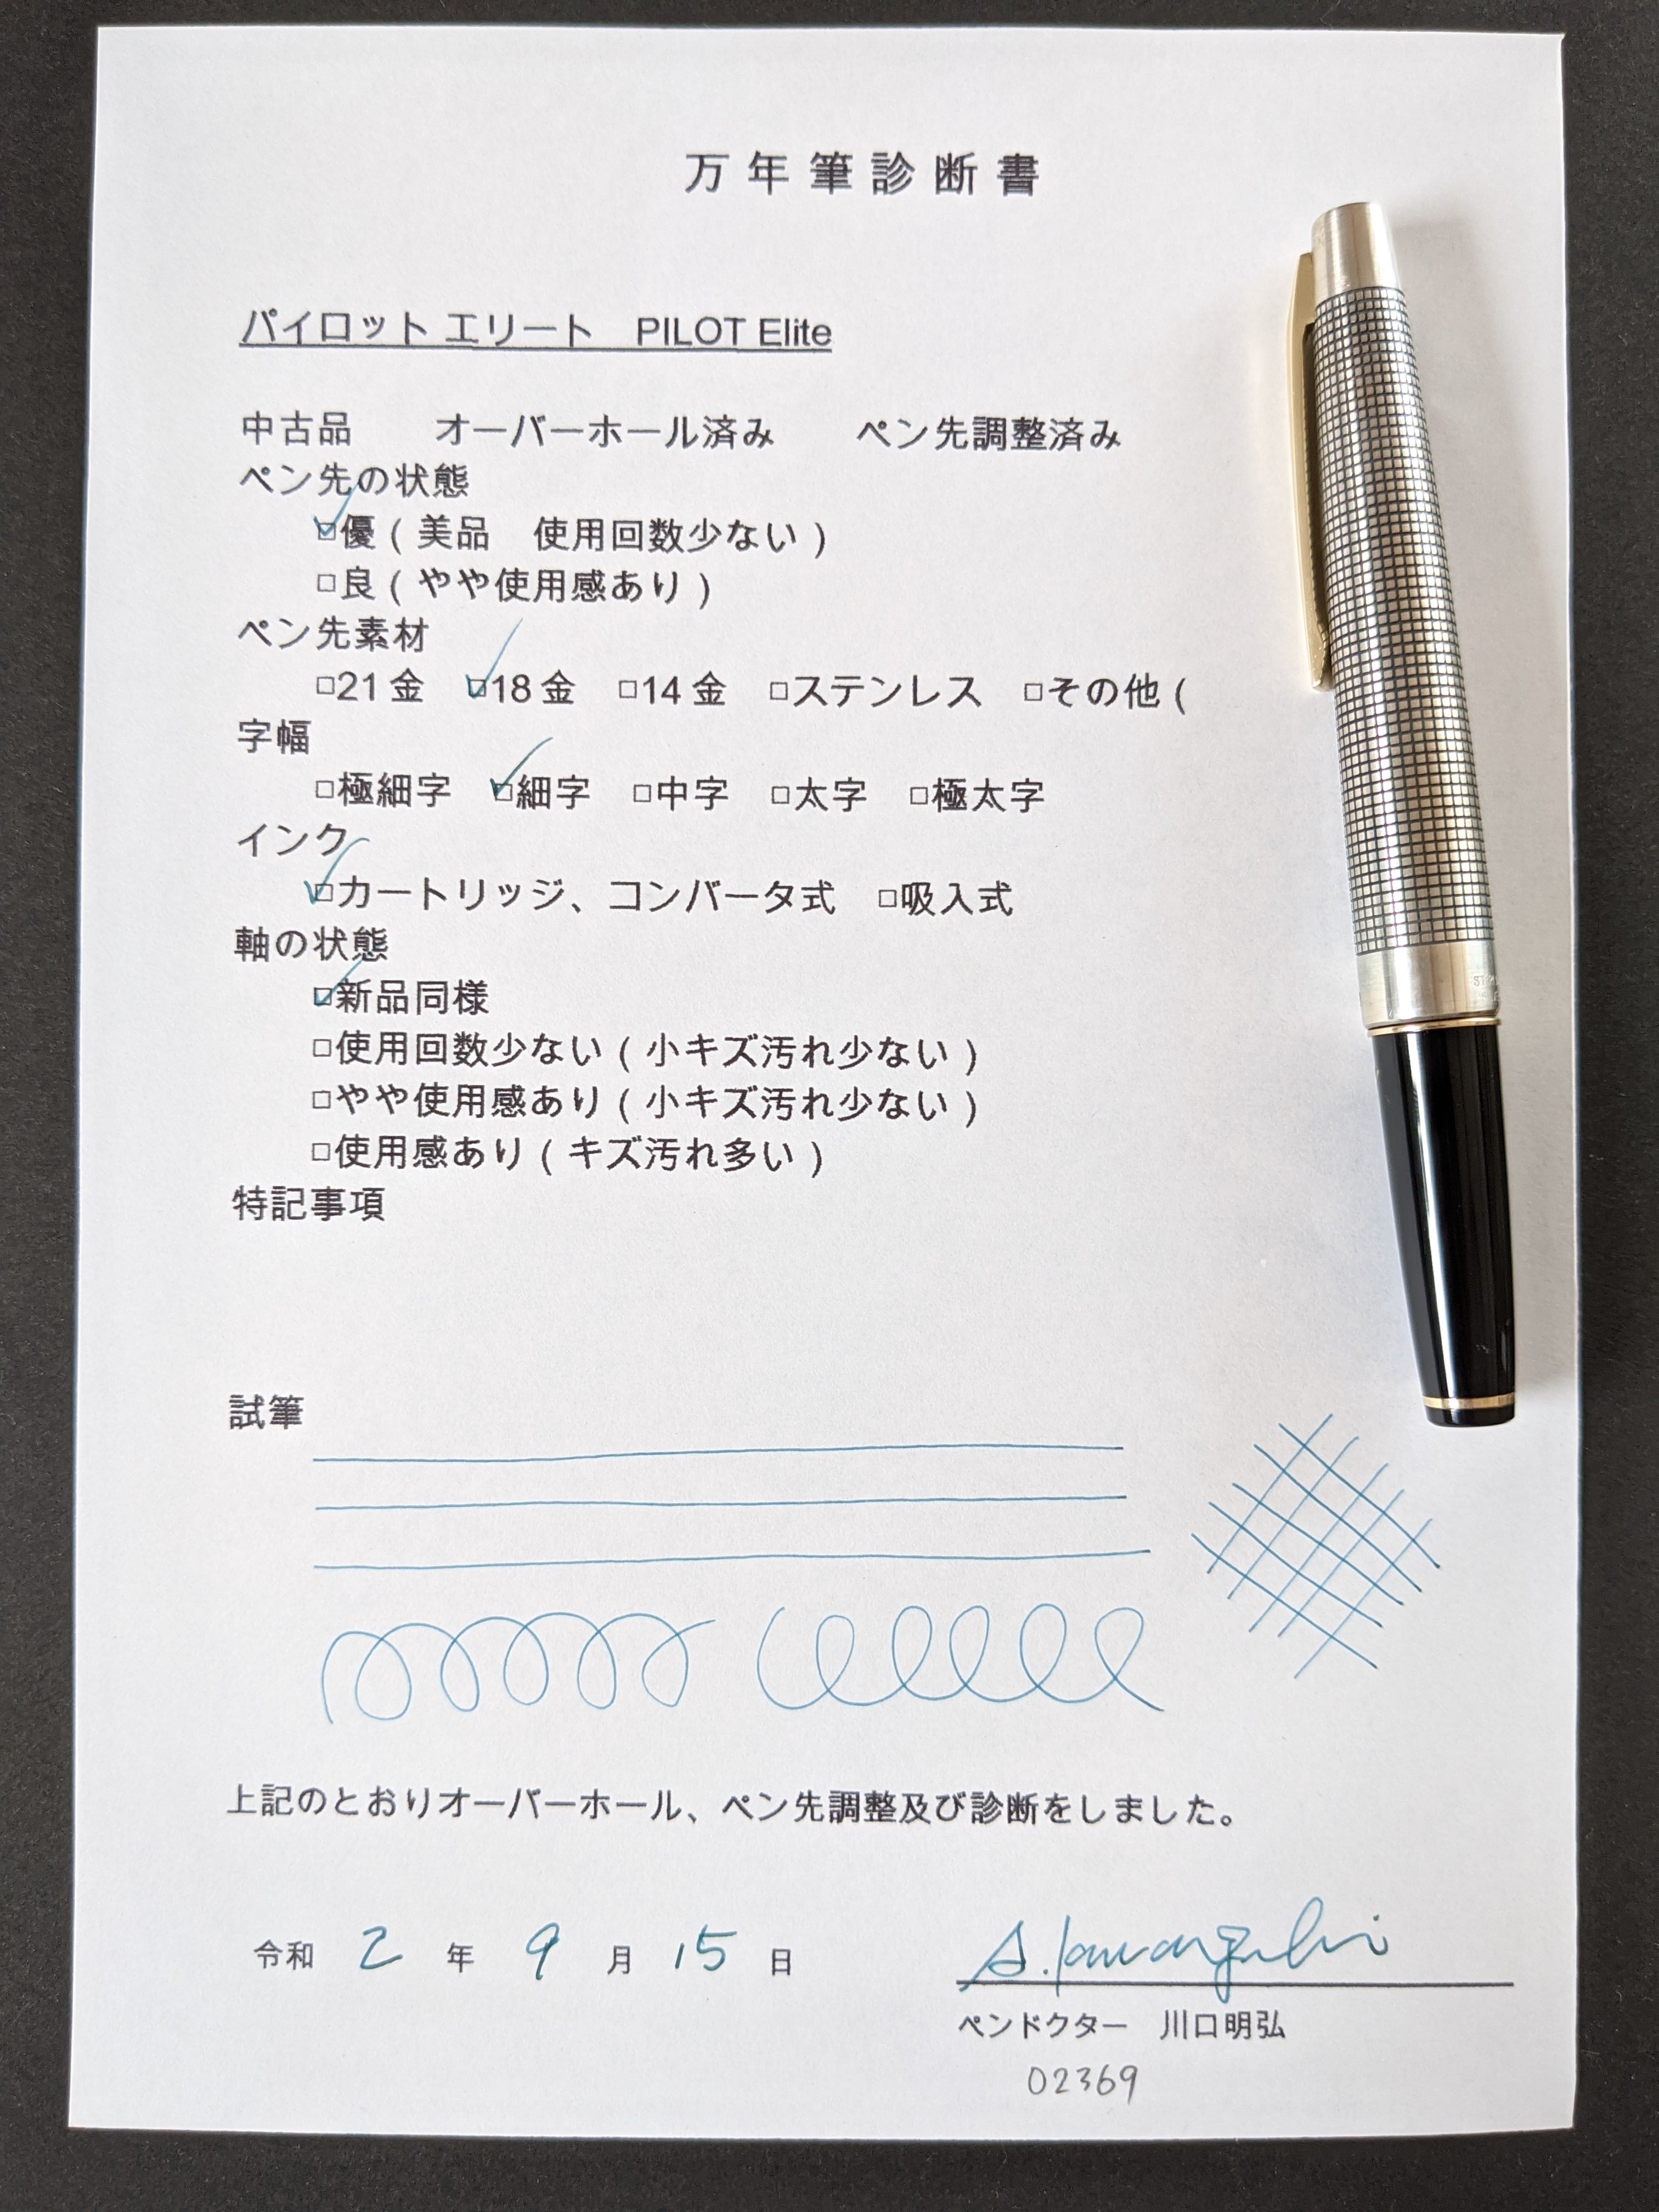 万年筆診断書
パイロット エリート　PILOT Elite
中古品　　オーバーホール済み　　ペン先調整済み
ペン先の状態
☑優（美品　使用回数少ない）
□良（やや使用感あり）
ペン先素材
□21金　☑18金　□14金　□ステンレス　□その他（
字幅
□極細字　☑細字　□中字　□太字　□極太字
インク
☑カートリッジ、コンバータ式　□吸入式
軸の状態
☑新品同様
□使用回数少ない（小キズ汚れ少ない）
□やや使用感あり（小キズ汚れ少ない）
□使用感あり（キズ汚れ多い）
特記事項
試筆
上記のとおりオーバーホール、ペン先調整及び診断をしました。
令和 2 年 9 月 15 日
A. Kawaguchi
ペンドクター　川口明弘
02369